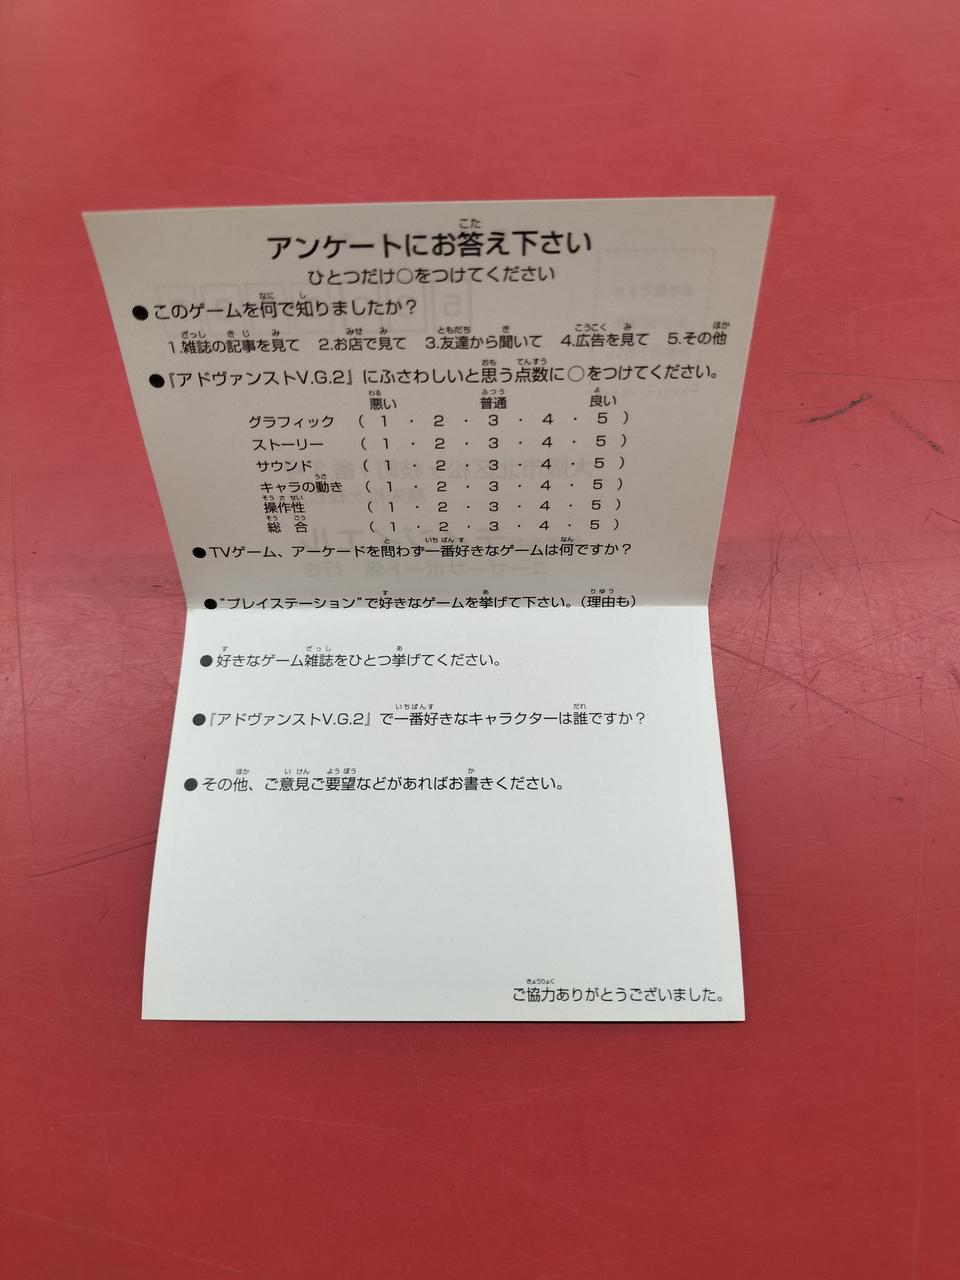 アンケートにお答え下さい
ひとつだけ○をつけてください
●このゲームを何で知りましたか？
1.雑誌の記事を見て 2.お店で見て 3.友達から聞いて 4.広告を見て 5.その他
●『アドヴァンストV.G.2』にふさわしいと思う点数に○をつけてください。
悪い 普通 良い
グラフィック （ 1 ・ 2 ・ 3 ・ 4 ・ 5 ）
ストーリー （ 1 ・ 2 ・ 3 ・ 4 ・ 5 ）
サウンド （ 1 ・ 2 ・ 3 ・ 4 ・ 5 ）
キャラの動き （ 1 ・ 2 ・ 3 ・ 4 ・ 5 ）
操作性 （ 1 ・ 2 ・ 3 ・ 4 ・ 5 ）
総合 （ 1 ・ 2 ・ 3 ・ 4 ・ 5 ）
●TVゲーム、アーケードを問わず一番好きなゲームは何ですか？
●"プレイステーション"で好きなゲームを挙げて下さい。（理由も）
●好きなゲーム雑誌をひとつ挙げてください。
●『アドヴァンストV.G.2』で一番好きなキャラクターは誰ですか？
●その他、ご意見ご要望などがあればお書きください。
ご協力ありがとうございました。